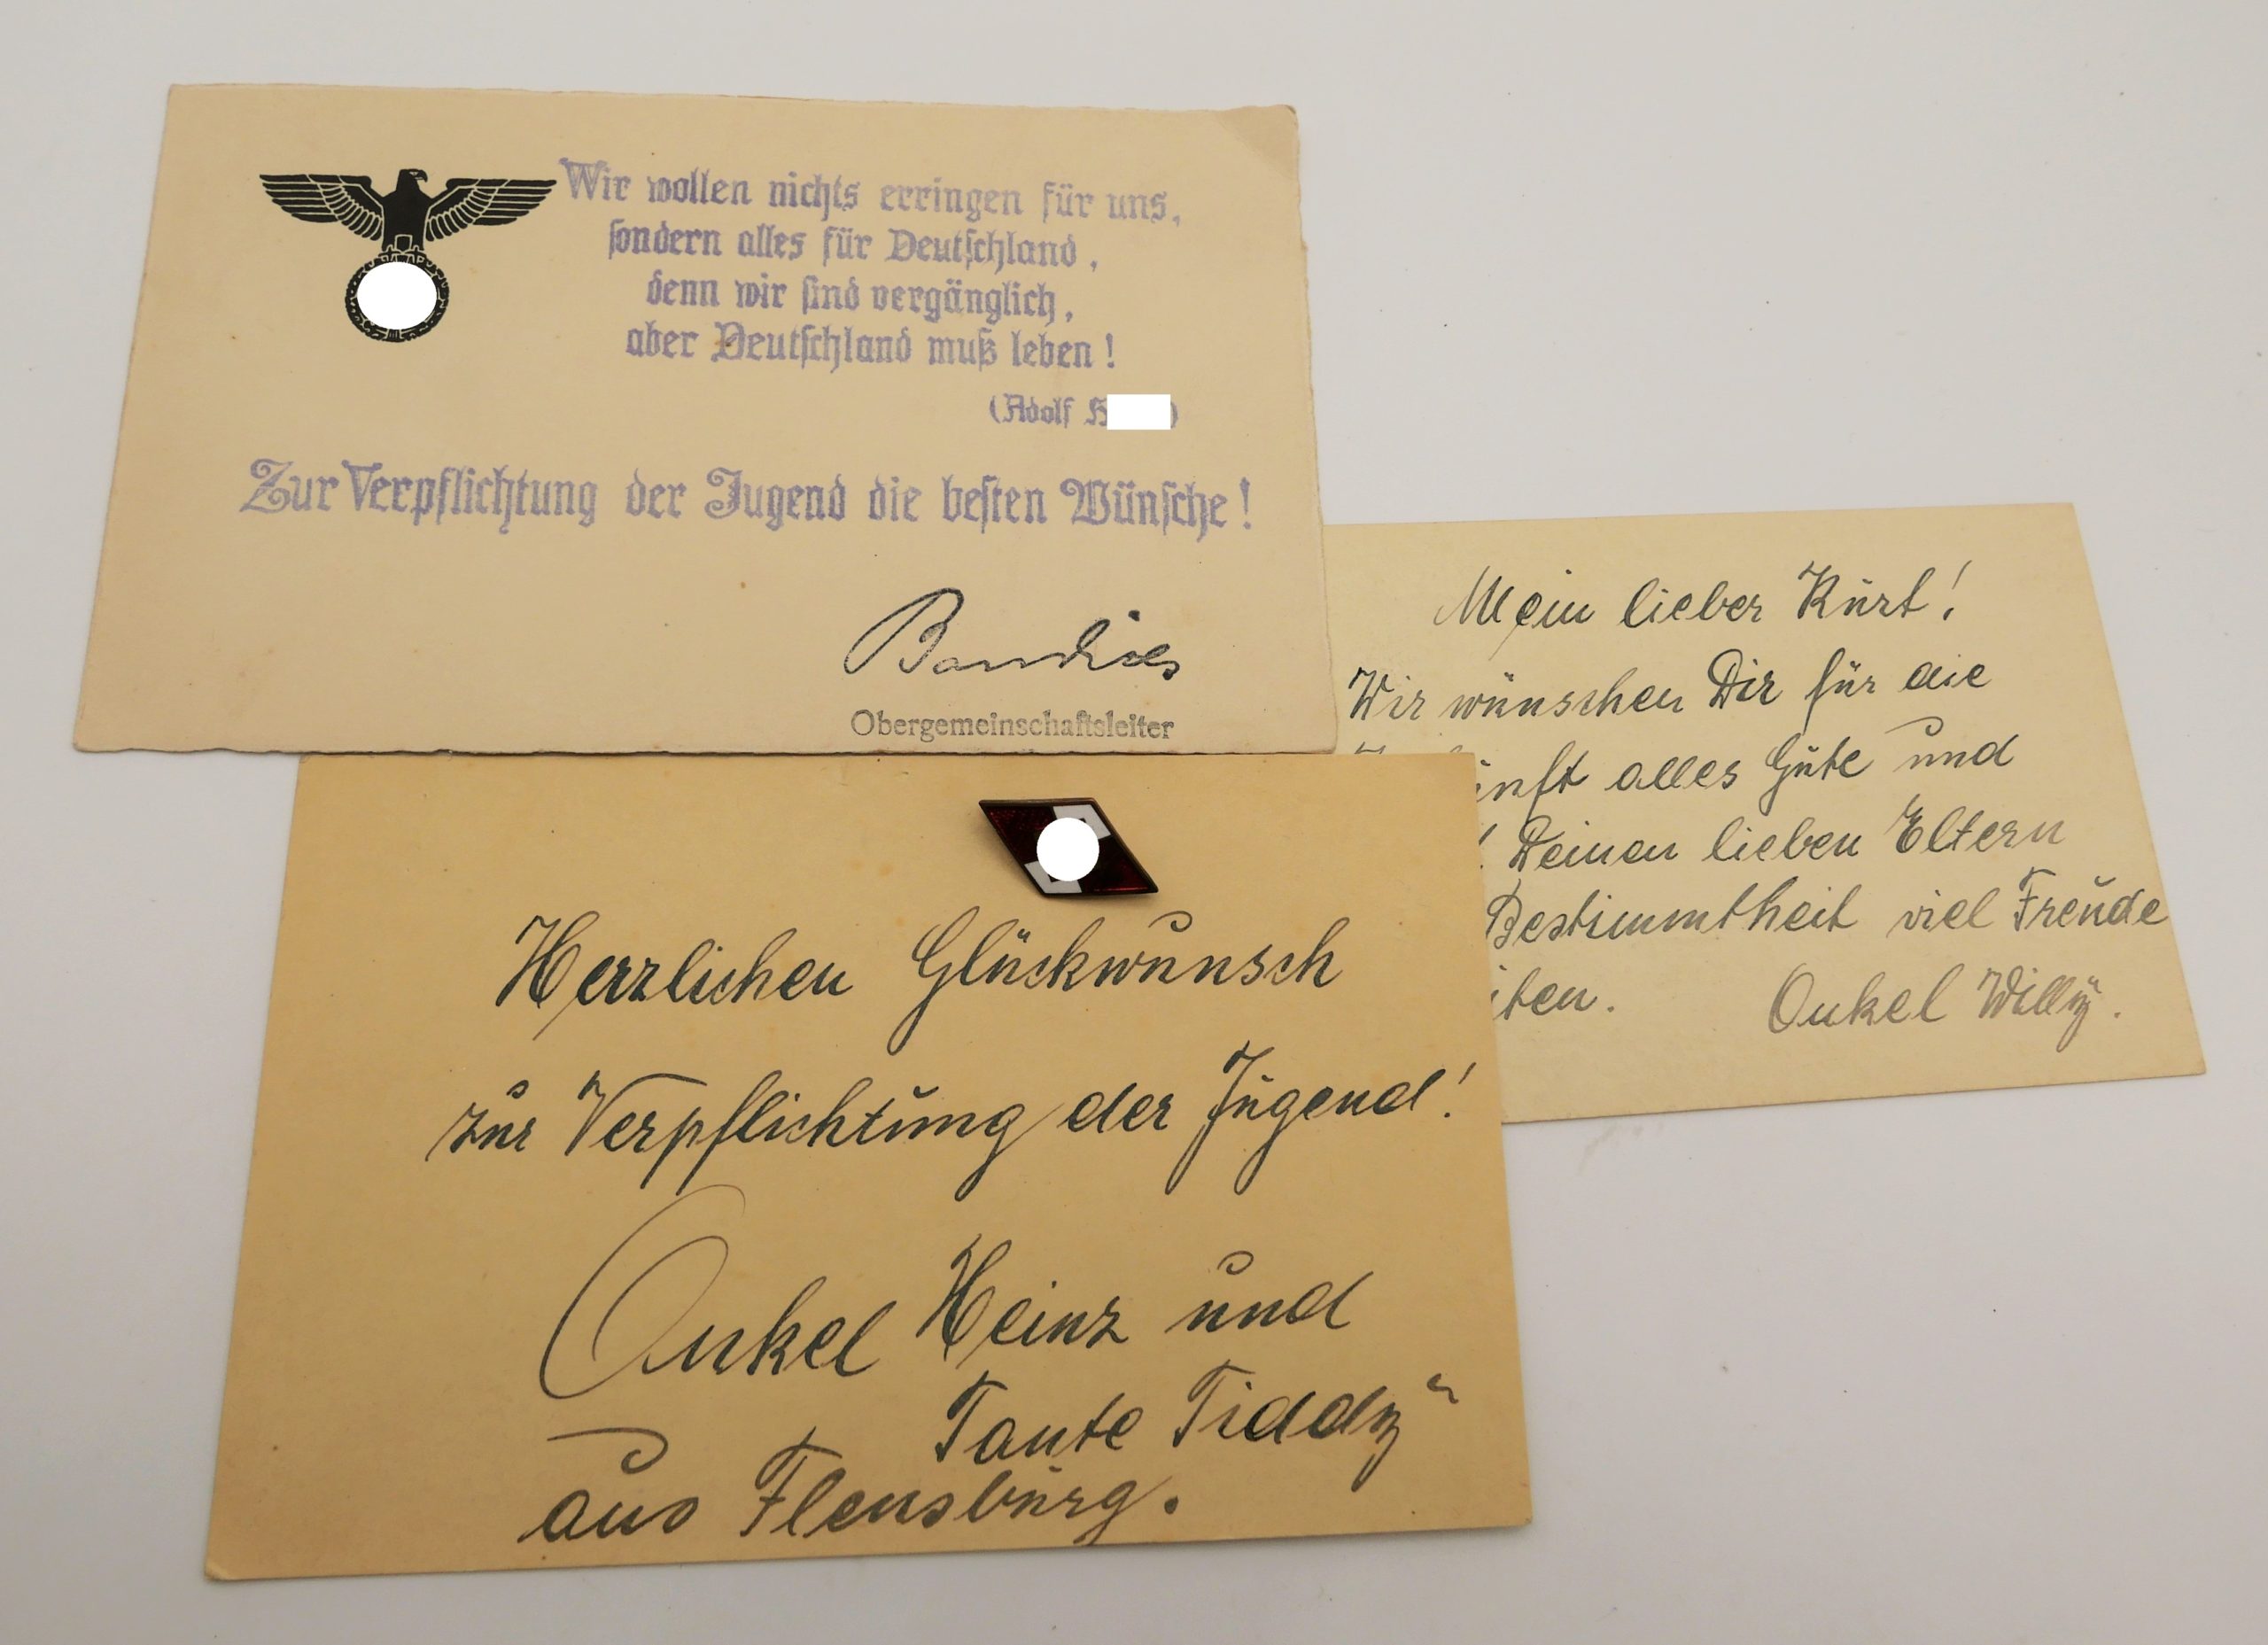 Wir wollen nichts erringen für uns,
sondern alles für Deutschland,
denn wir sind vergänglich,
aber Deutschland muß leben!
(Adolf H)
Zur Verpflichtung der Jugend die besten Wünsche!
Obergemeinschaftsleiter
Mein lieber Kurt!
Wir wünschen Dir für die
unft alles Gute und
Deinen lieben Eltern
Bestimmtheit viel Freude
iten. Onkel Willy.
Herzlichen Glückwunsch
zur Verpflichtung der Jugend!
Onkel Heinz und
Tante Tiddy
aus Flensburg.